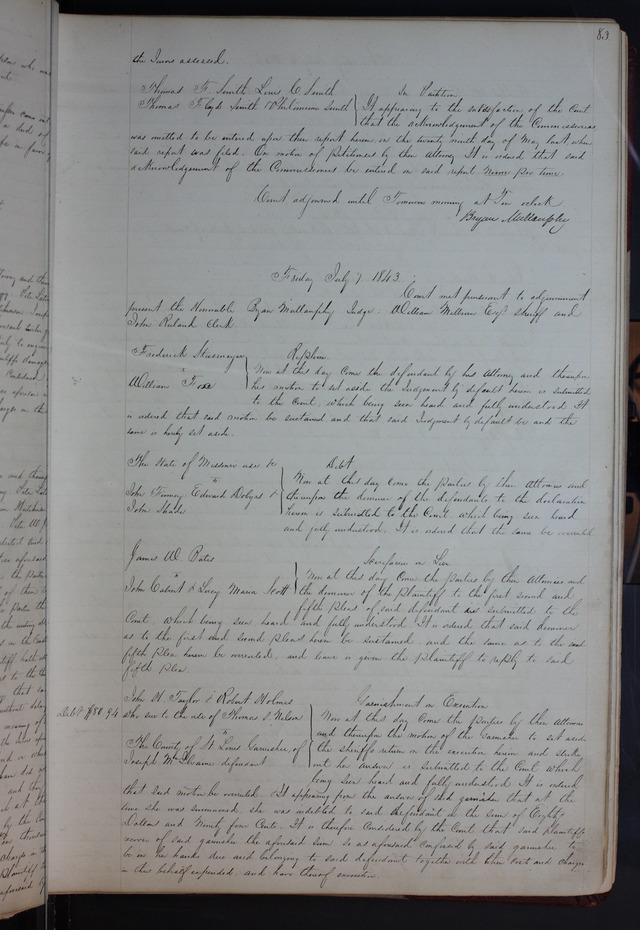 83
the Jurors assessed.
Thomas F. Smith Louis C Smith In Partition
Thomas Floyd Smith & Philomena Smith It appearing to the satisfaction of the Court
that the acknowledgement of the Commissioners
was omitted to be entered upon their report herein on the twenty ninth day of May last when
said report was filed. On motion of Petitioners by their Attorney It is ordered that said
acknowledgement of the Commissioners be entered on said report Nunc pro tunc
Court adjourned until Tomorrow morning at Ten oclock
Bryan Mullanphy
Friday July 7 1843
Court met pursuant to adjournment
present the Honorable Bryan Mullanphy Judge. William Milburn Esqr Sheriff and
John Ruland Clerk
Frederick
vs
William Now at this day Come the defendant by his Attorney and thereupon
his motion to set aside the Judgement by default herein is submitted
to the Court, which being seen heard and fully understood It
is ordered that said motion be sustained and that said Judgement by default be and the
same is hereby set aside.
The State of Missouri use &c Debt
vs Now at this day come the parties by their Attorneys and
John Finney Edward Dobyns & thereupon the demurrer of the defendants to the declaration
John Shade herein is submitted to the Court which being seen heard
and fully understood. It is ordered that the same be overruled
James W. Bates Scirefacias on Lien
vs Now at this day Come the parties by their Attornies and
John Calvert & Lucy Maria Scott the demurrer of the plaintiff to the first second and
fifth pleas of said defendant is submitted to the
Court, which being seen heard and fully understood. It is ordered that said demurrer
as to the first and second pleas herein be sustained, and the same as to the said
fifth plea herein be overruled, and leave is given the plaintiff to reply to said
fifth plea.
John W. Taylor & Robert Holmes Garnishment on Execution
Debt $80.94 who sue to the use of Thomas S. Nelson Now at this day Come the parties by their Attornies
vs and thereupon the motion of the Garnishee to set aside
The County of St Louis Garnishee of the sheriffs return on the execution herein and strike
Joseph defendant out her answer is submitted to the Court which
being seen heard and fully understood It is ordered
that said motion be overruled. It appearing from the answer of said garnishee that at the
time she was summoned she was indebted to said defendant in the sum of Eighty
Dollars and Ninety four Cents. It is therefore Considered by the Court that said plaintiffs
recover of said garnishee the aforesaid sum so as aforesaid confessed by said garnishee to
be in her hands due and belonging to said defendant together with their cost and charges
in this behalf expended, and have thereof execution.